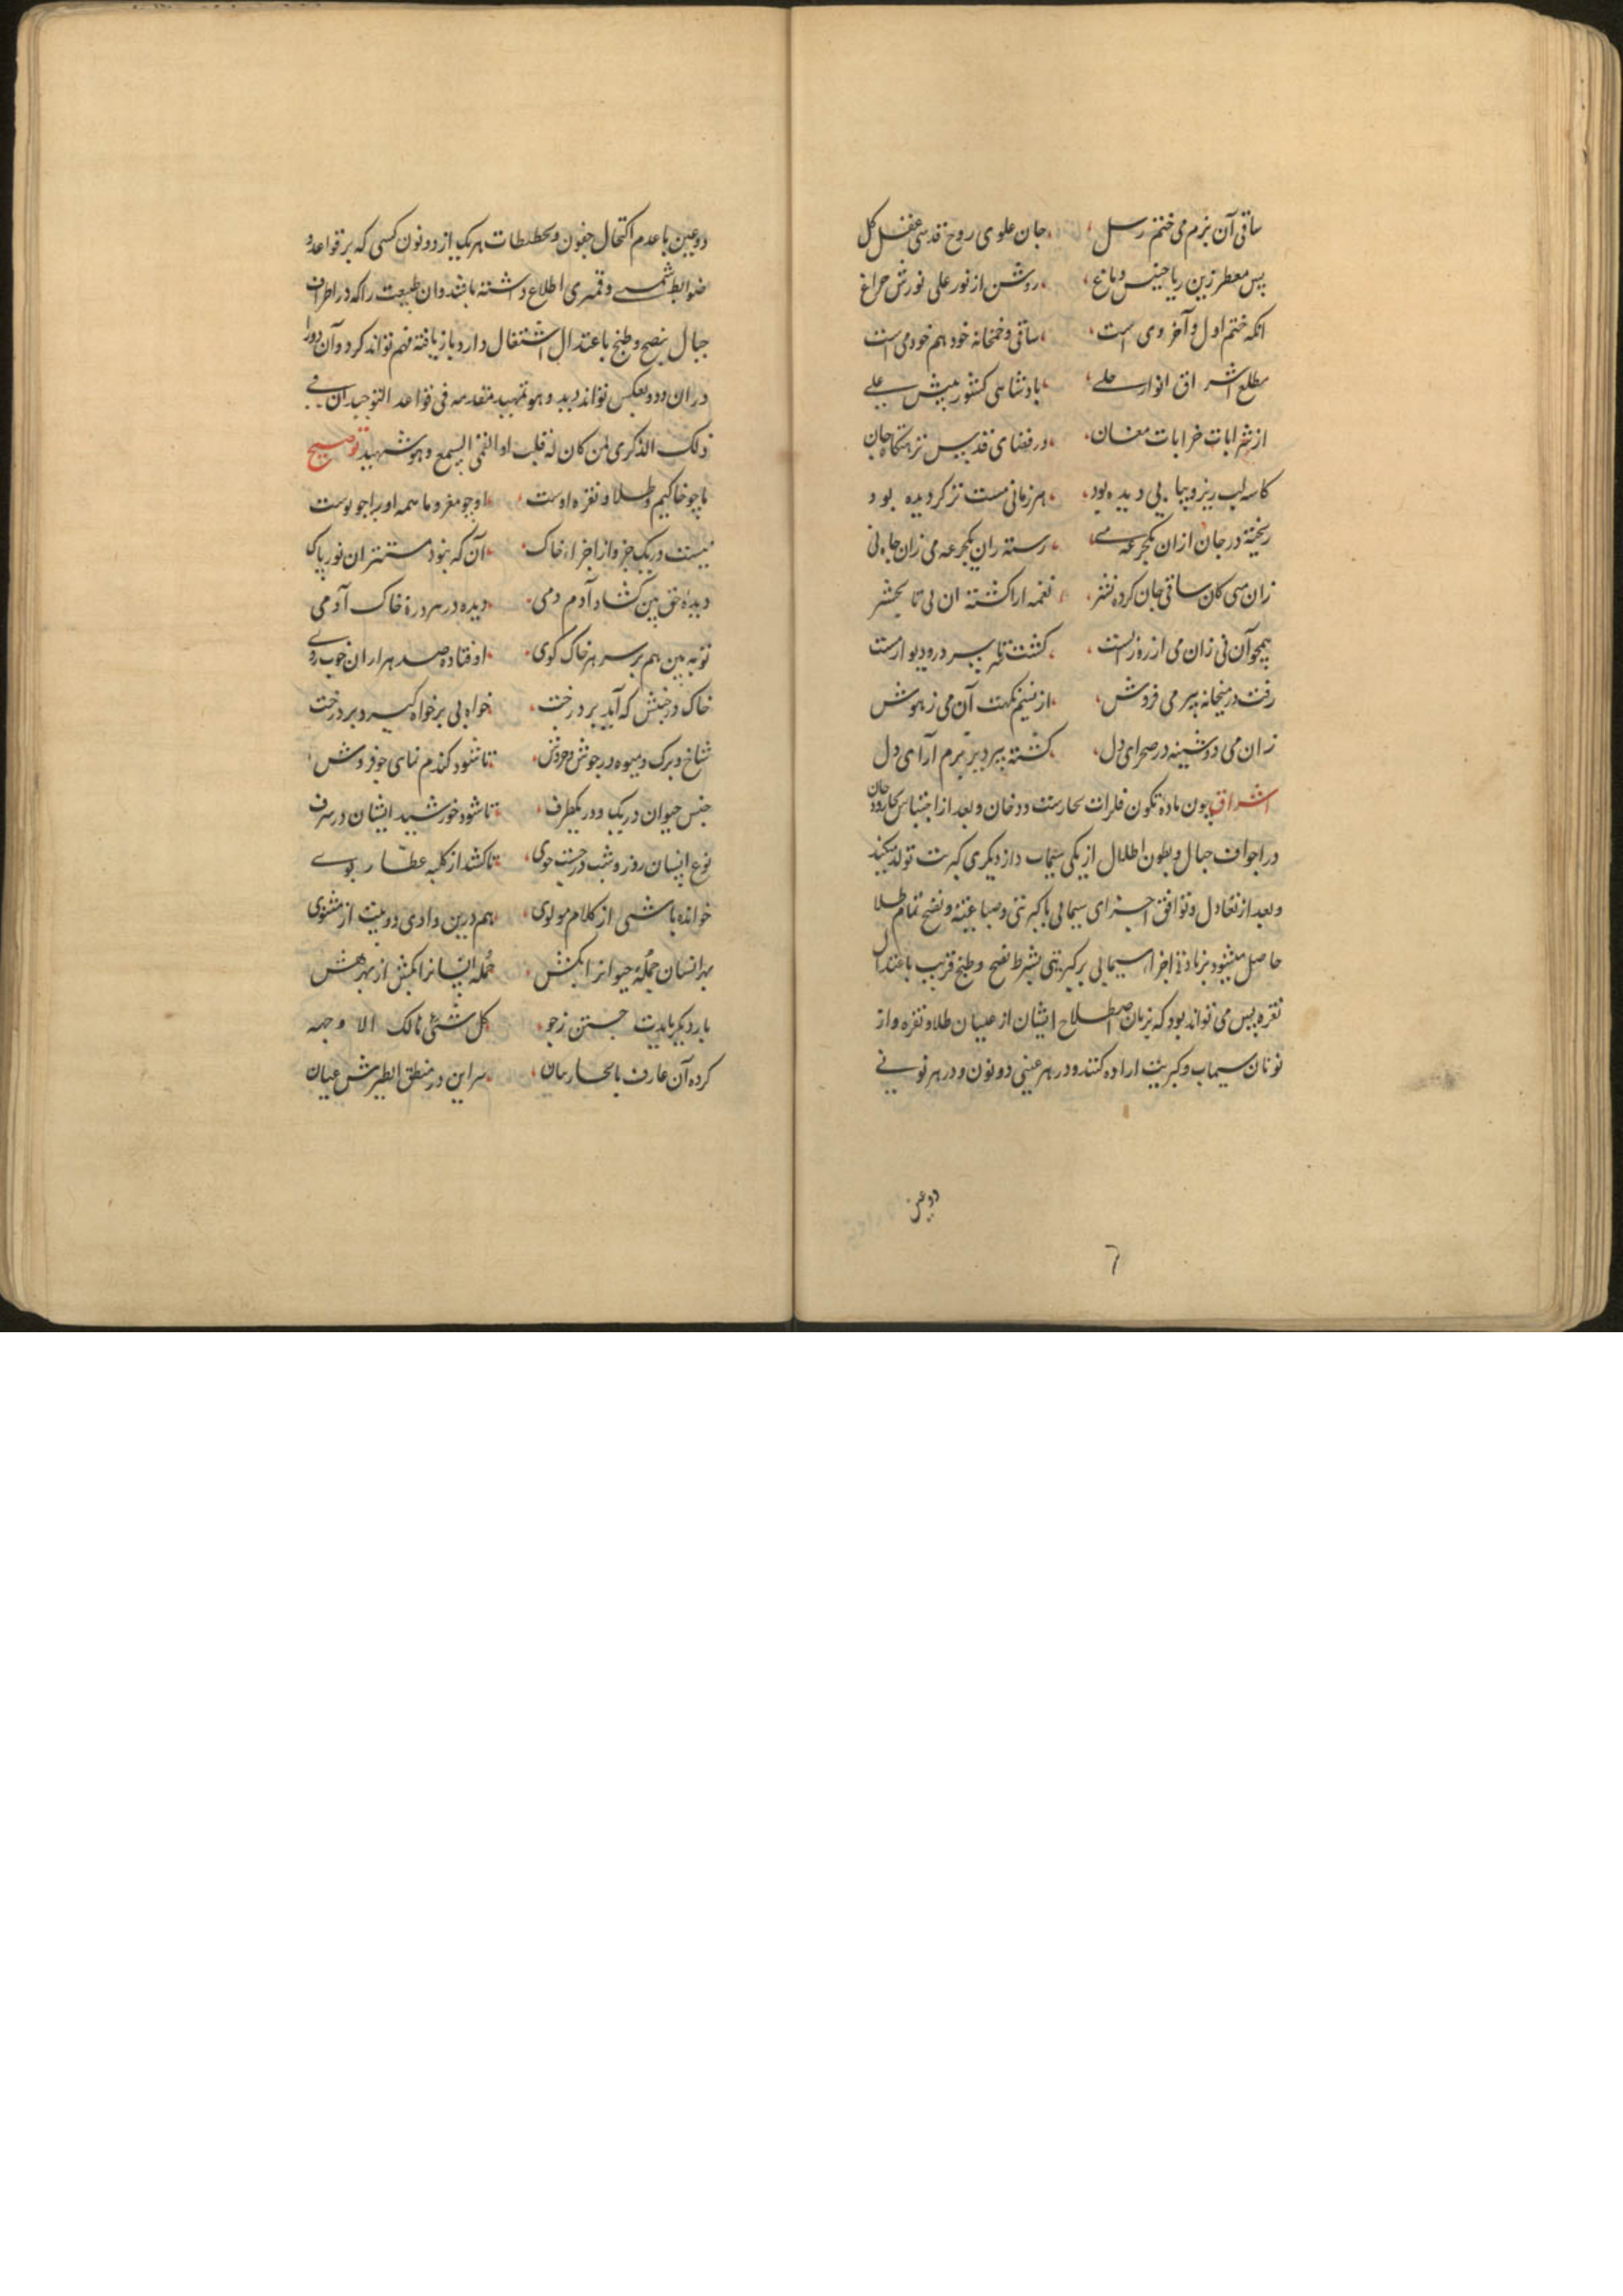 ساقی آن بزم می ختم رسل جان علوی روح قدسی عقل کل
پس معطر زین ریاحینس دماغ روشن از نور علی نورش چراغ
انکه ختم اول و آخر وی است ساقی و خمخانه خود هم خود می است
مطلع اشراق انوار جلی پادشاهی کشور پیش علی
از شرابات خرابات مغان در فضای قدس نزهتکاه جان
کاسه لب ریز و پیما بی دیده بود هر زمانی مست تر کردیده بود
ریخته در جان ازان یکجرعه می رسته زان یکجرعه می زان جا نی
زان می کان ساقی جان کرده نشر نغمه ارا کشته ان نی تا بحشر
همچو آن نی زان می از ره رست کشت سر در و دیوار مست
رفت در میخانه پیر می فروش از نسیم نکهت آن می ز هوش
زان می دوشینه در صحرای دل کشته پیر دیر بزم آرای دل
اشراق چون ماده تکون فلزات بخارست و دخان و بعد از احتباس بخار و دخان
در اجواف جبال و بطون اطلال از یکی سیماب و از دیکری کبریت تولد میکند
و بعد از تعادل و توافق اجزای سیمابی با کبریتی و صباغیته و نضج تمام طلا
حاصل میشود بزیادة اجزاء سیمابی بر کبریتی بشرط نضج و طبخ قریب باعتدال
نقره پس می تواند بود که بزبان اصطلاح ایشان از عینان طلا و نقره و از
نونان سیماب و کبریت اراده کنند و در هر عینی دو نون و در هر نونی
دو عین
6
دو عین با عدم اکتحال جفون و تخطیطات هر یک از دو نون کسی که بر قواعد و
ضوابط شمسی و قمری اطلاع داشته باشد و ان طبیعت را که در اطراف
جبال بنضج و طبخ باعتدال اشتغال دارد باز یافته فهم تواند کرد و آن دو را
در ان دو و بعکس تواند دید و هو تمهید مقدمه فی قواعد التوحید ان فی
ذلک الذکری لمن کان له قلب او القی السمع و هو شهید توضیح
ما چو خاکیم و طلا و نقره اوست او چو مغز و ما همه او را چو پوست
نیست در یک جزو از اجزاء خاک آن که نبود مستتر ان نور پاک
دیدهٔ حق بین کشاد آدم دمی دیده در هر ذرهٔ خاک آدمی
تو به بین هم بر سر هر خاک کوی اوفتاده صد هزاران خوب روی
خاک در جنبش که آید بر درخت خواه بی بر خواه کیرد بر درخت
شاخ و برک و میوه در جوش و خروش تا شود کندم نمای جو فروش
جنس حیوان در یک و دو یکطرف تا شود خورشید ایشان در شرف
نوع انسان روز و شب در جست جوی تا کشد از کلبه عطار بوی
خوانده باشی از کلام مولوی هم درین وادی دو بیت از مثنوی
بهر انسان جملهٔ حیوانرا بکش جمله انسانرا بکش از بهر هش
بار دیکر بایدت جستن ز جو کل شیئ هالک الا وجهه
کرده آن عارف با محارسان سر این در منطق الطیرش عیان